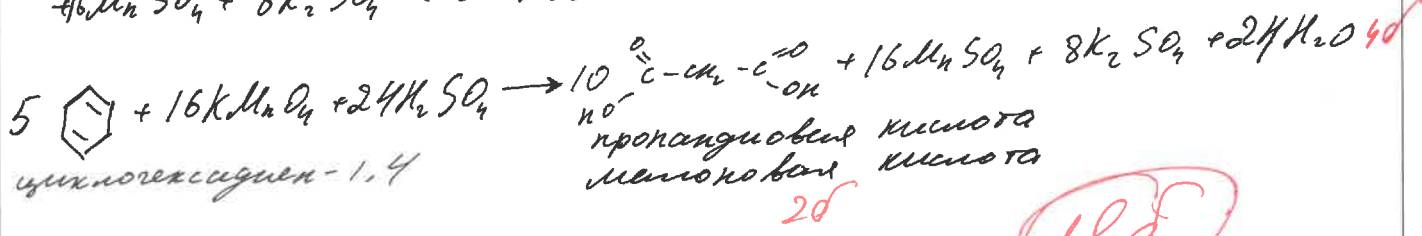 +16MnSO₄ + 8K₂SO₄
5 + 16KMnO₄ + 24H₂SO₄ → 10 O C-CH₂-C =O -OH HO + 16MnSO₄ + 8K₂SO₄ + 24H₂O 4б
циклогексадиен-1,4
пропандиовая кислота
малоновая кислота
2б